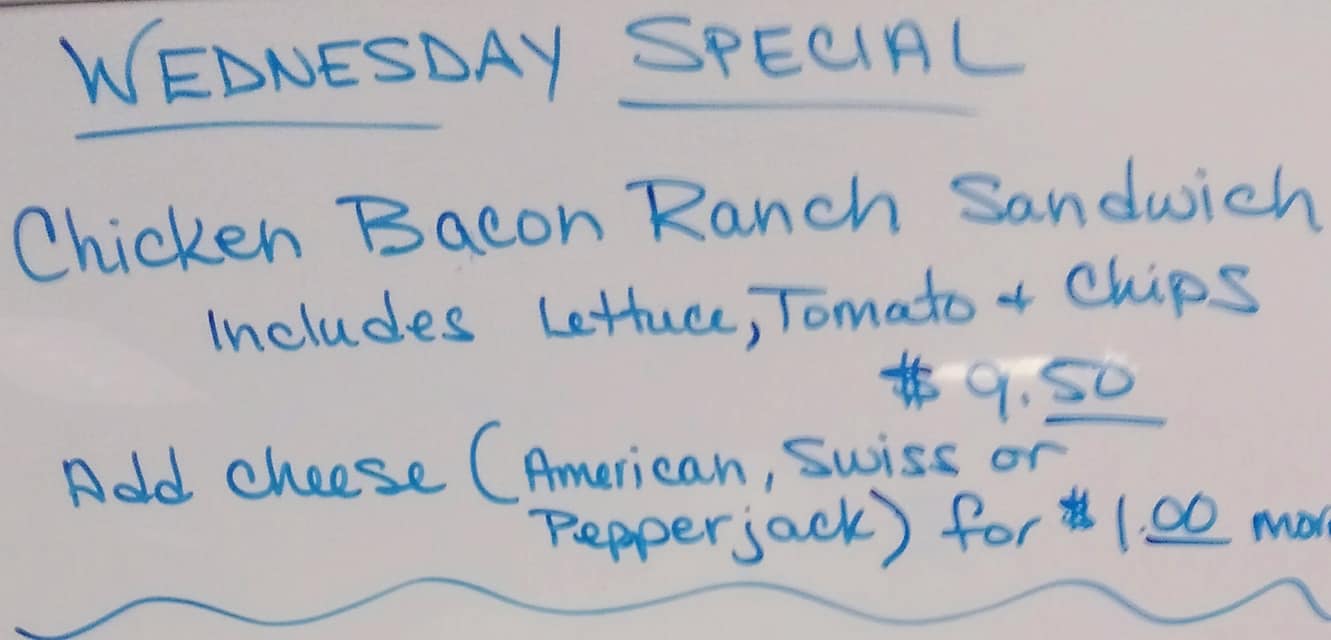 WEDNESDAY SPECIAL
Chicken Bacon Ranch Sandwich
Includes Lettuce, Tomato + Chips
$9.50
Add cheese (American, Swiss or
Pepperjack) for $1.00 mor